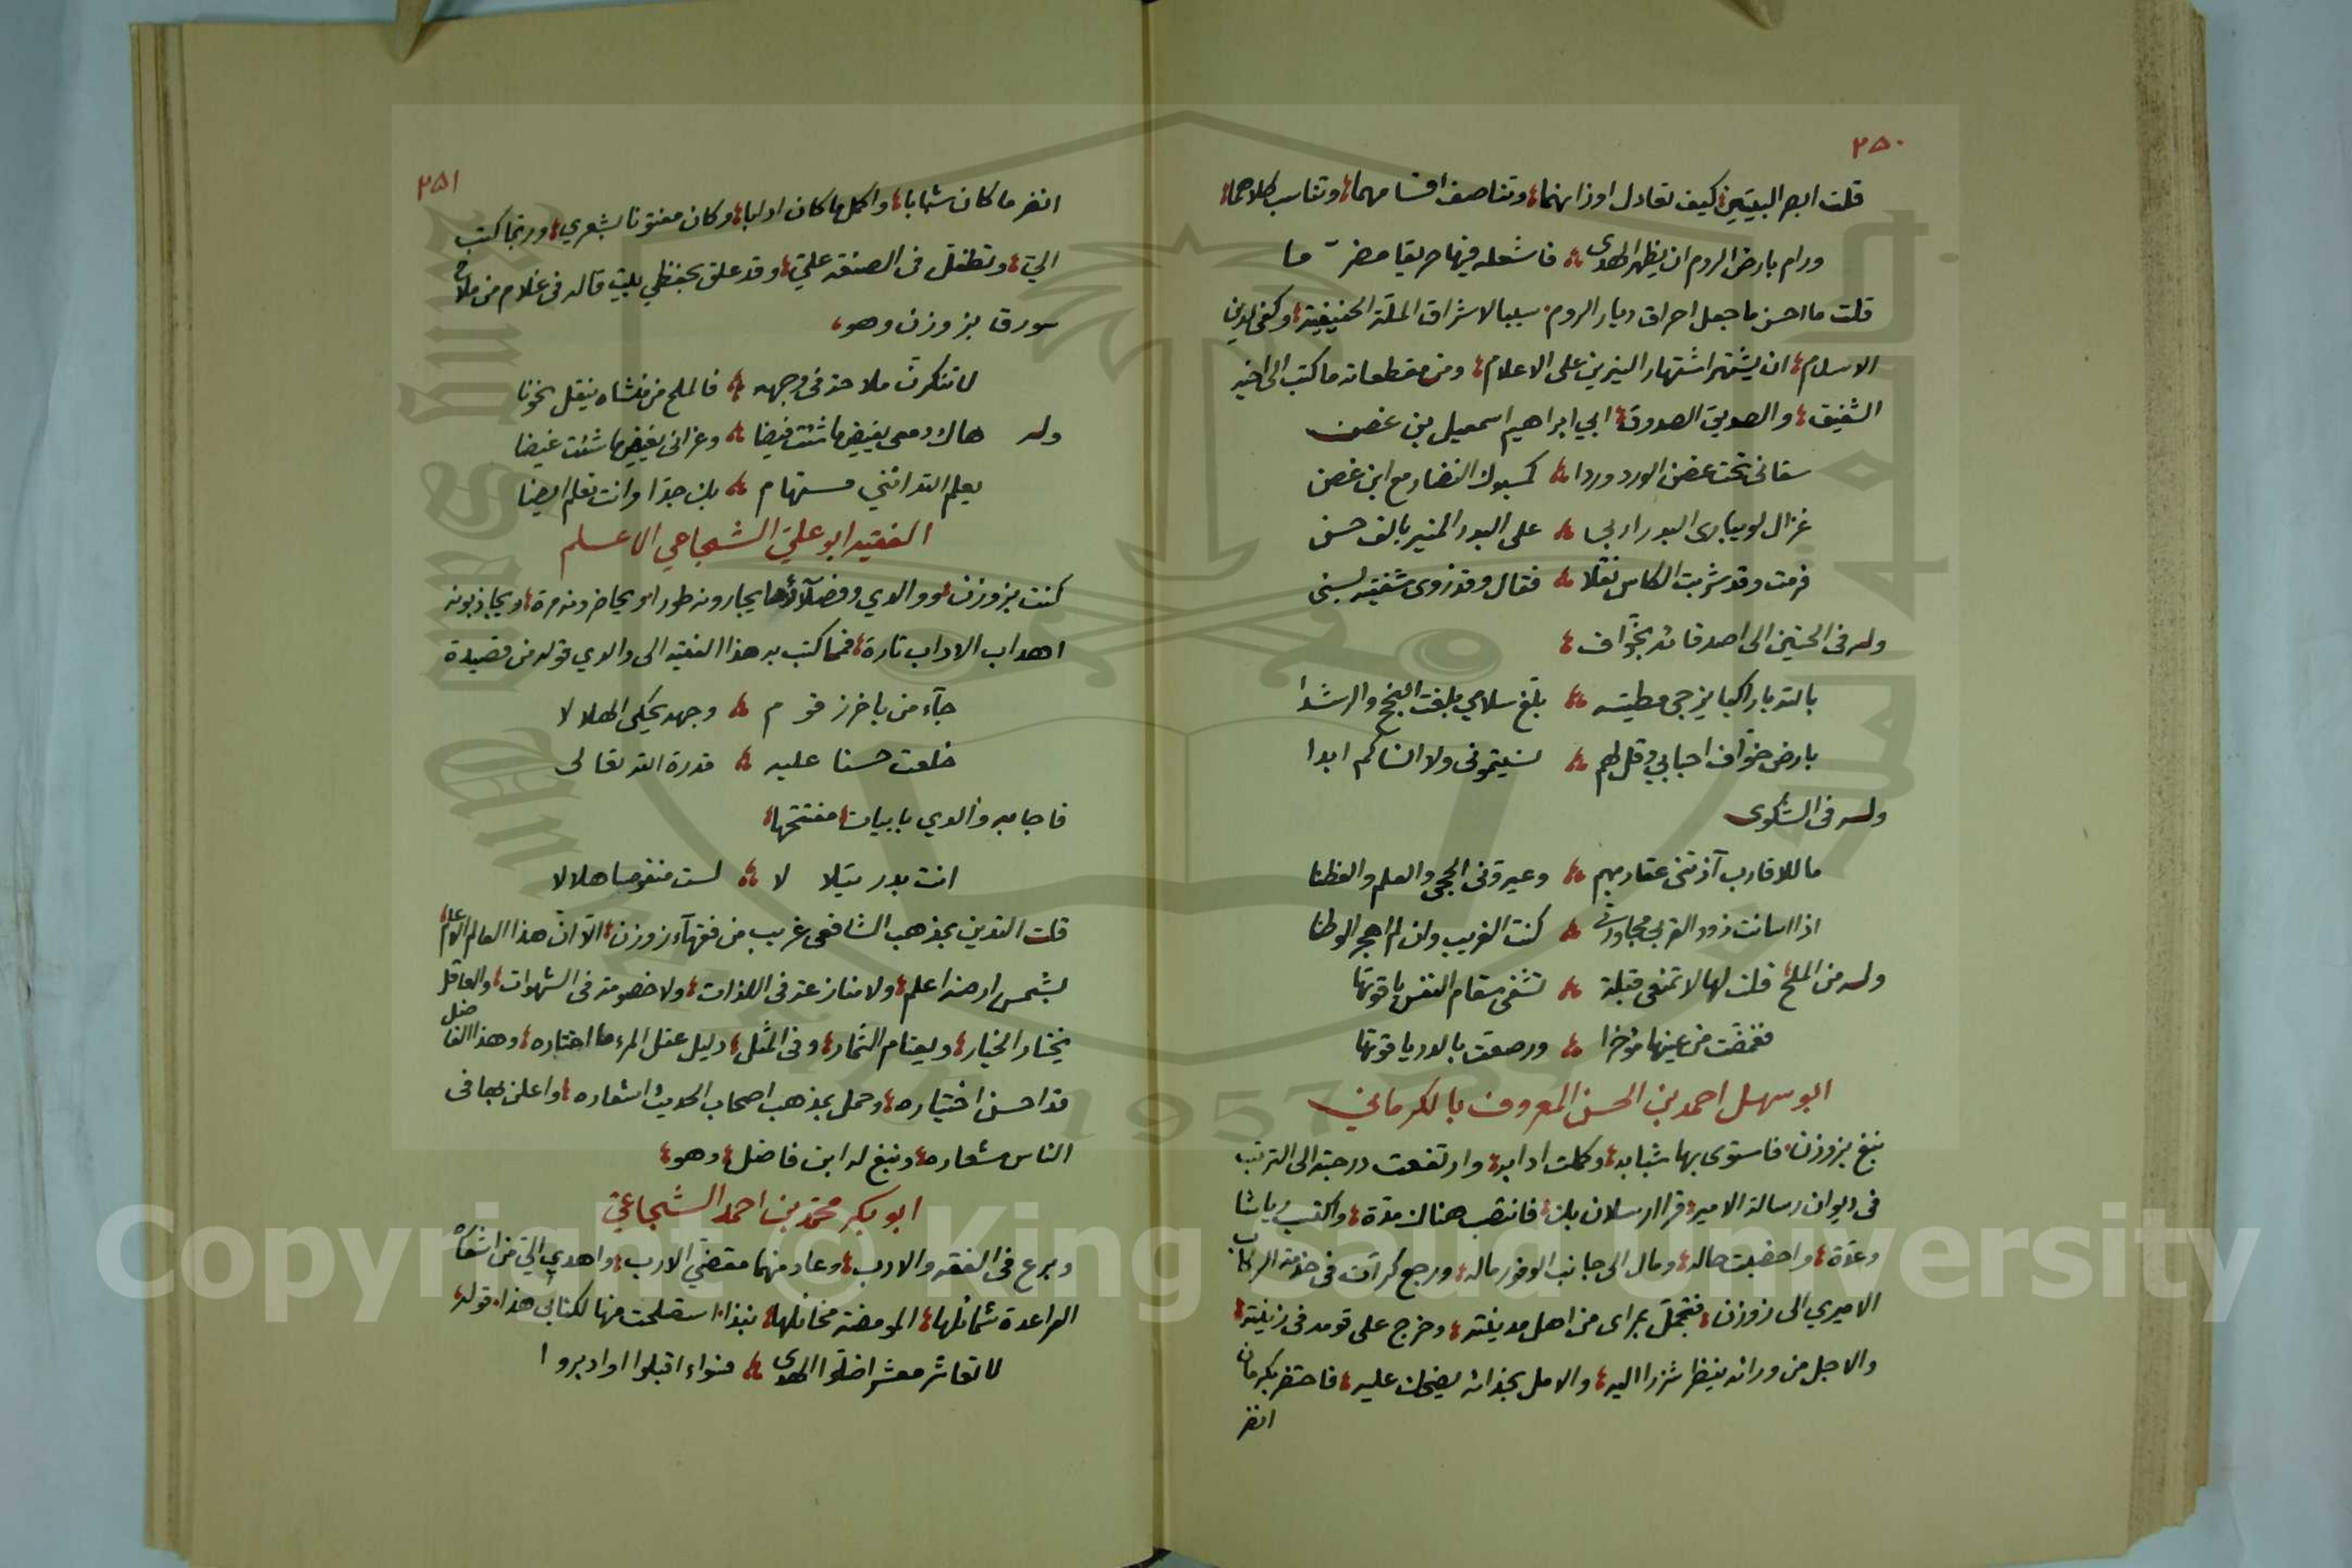 ٢٥٠
قلت ابصر البيتين كيف تعادل اوزانهما وتناصف اقسامهما وتناسب كلاهما
ورام بارض الروم ان يظهر الهدى فاشعله فيها حريقا مضرما
قلت ما احسن ما جعل احراق ديار الروم سببا لاشراق الملة الحنيفية وكفى لدين
الاسلام ان يشتهر اشتهار النيرين على الاعلام ومن مقطعاته ما كتب الى اخيه
الشفيق والصديق الصدوق ابي ابراهيم اسمعيل بن غصن
سقانى تحت غصن الورد وردا كمسبوك النضار مع ابن غصن
غزال لو يبارى البدر اربى على البدر المنير بالف حسن
فرمت وقد شربت الكاس نقلا فقال وقد زوى شفتيه لسنى
وله فى الحنين الى اصدقائه بخواف
بالله يا راكبا يزجى مطيته بلغ سلامي بلغت النجح والرشدا
بارض خواف احبابي وقل لهم نسيتمونى ولا انساكم ابدا
وله فى الشكوى
ما للاقارب آذتنى عقاربهم وعيرونى الحجى والعلم والفطنا
اذا اسائت ذوو القربى مجاورتى كنت الغريب وان لم اهجر الوطنا
وله من الملح قلت لها لا تمنعى قبلة تشفى سقام النفس ياقوتها
فغمضت من عينها مؤخرا ورصعت بالدر ياقوتها
ابو سهل احمد بن الحسن المعروف بالكرماني
نبغ بزوزن فاستوى بها شبابه وكملت ادابه وارتفعت درجته الى الترتب
فى ديوان رسالة الامير قرا ارسلان بك فانتصب هناك مدة واكتسب رياشا
وعدة واخضبت حاله ومال الى جانب الوفور ماله ورجع كرات فى خدمة الركاب
الاميري الى زوزن فتجمل بمراى من اهل مدينته وخرج على قومه فى زينته
والاجل من ورائه ينظر شزرا اليه والامل بحذائه يضحك عليه فاحتضر بكرمان
انضر
٢٥١
انضر ما كان شبابا واكمل ما كان ادابا وكان مفتونا بشعري وربما كتب
الي وتطفل فى الصنعة علي وقد علق بحفظي بيت قاله فى غلام من ملاح
سورق بزوزن وهو
لا تنكرن ملاحة فى وجهه فالملح من منشاه ينقل نحونا
وله هاك دمعى يفيض ما شئت فيضا وعزائى يغيض ما شئت غيضا
يعلم الله اننى مستهام بك جدا وانت تعلم ايضا
الفقيه ابو علي الشجاعي الاعلم
كنت بزوزن ووالدي وفضلاؤها يجارونه طورا ويحاضرونه مرة ويجاذبونه
اهداب الاداب تارة فمما كتب به هذا الفقيه الى والدي قوله من قصيدة
جآء من باخرز قوم وجهه يحكى الهلالا
خلعت حسنا عليه قدرة الله تعالى
فاجابه والدي بابيات مفتتحها
انت بدر يتلالا لست منقوصا هلالا
قلت التدين بمذهب الشافعى غريب من فقهآء زوزن الا ان هذا العالم الاعلم
بشمس ارضه اعلم ولا منازعة فى اللذات ولا خصومة فى الشهوات والعاقل
يختار الخيار ويعتام الثمار وفى المثل دليل عقل المرء ما اختاره وهذا الفاضل
قد احسن اختياره وحمل بمذهب اصحاب الحديث اشعاره واعلن بها فى
الناس شعاره ونبغ له ابن فاضل وهو
ابو بكر محمد بن احمد الشجاعي
وبرع فى الفقه والادب وعاد منهما مقضي الارب واهدي الي من اشعاره
الراعدة شمائلها المومضة مخائلها نبذا استصلحت منها لكتابى هذا قوله
لا تعاشر معشرا ضلوا الهدى فسواء اقبلوا او ادبروا